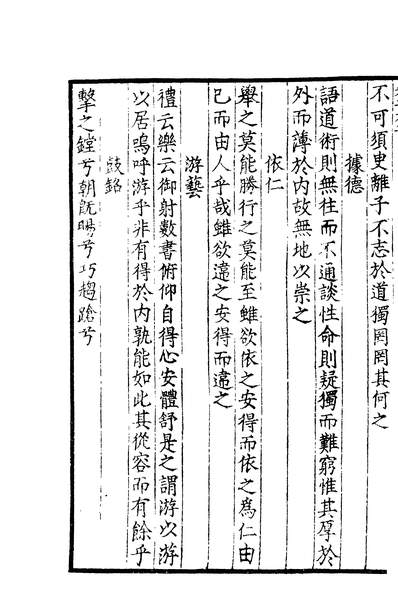 不可須臾離子不志於道獨罔罔其何之
據德
語道術則無往而不通談性命則疑獨而難窮惟其厚於
外而薄於内故無地以崇之
依仁
舉之莫能勝行之莫能至雖欲依之安得而依之為仁由
已而由人乎哉雖欲違之安得而違之
游藝
禮云樂云御射數書俯仰自得心安體舒是之謂游以游
以居嗚呼游乎非有得於内孰能如此其從容而有餘乎
鼓銘
擊之鏜兮朝既暘兮巧趨蹌兮